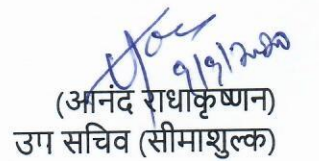 9/9/2020
(आनंद राधाकृष्णन)
उप सचिव (सीमाशुल्क)